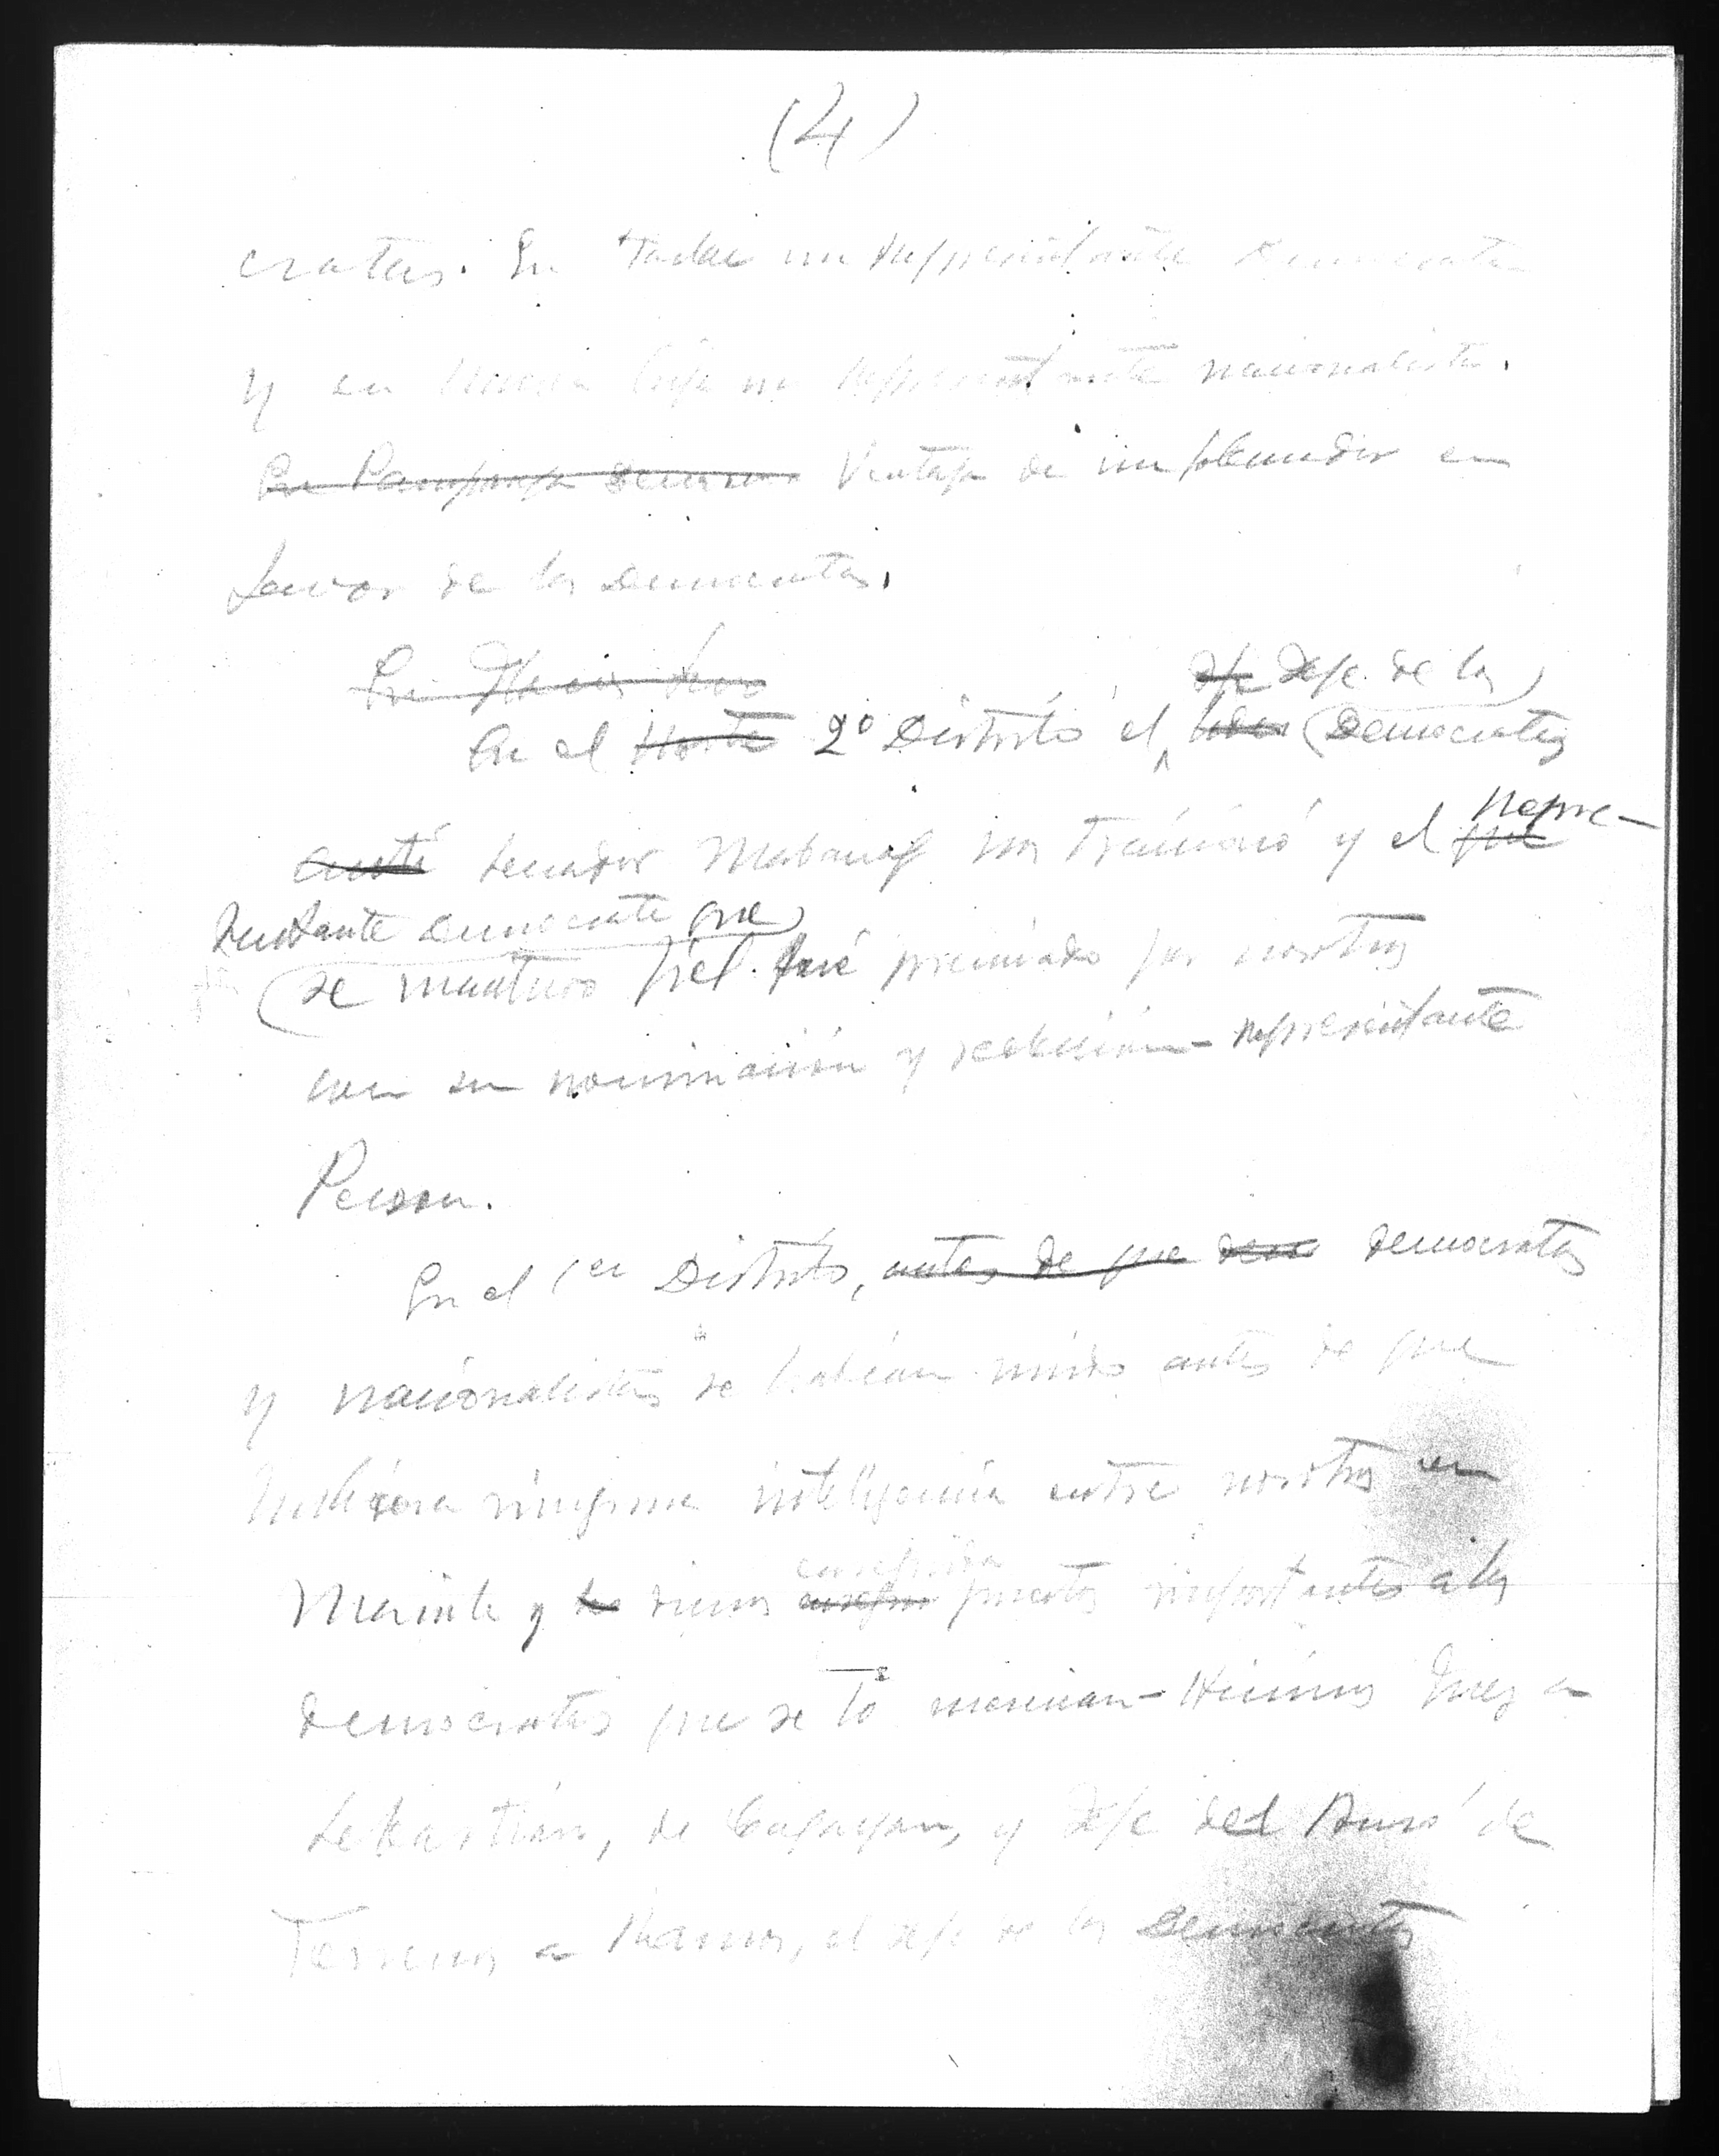 (4)
cratas. En Tarlac un representante Democrata
y en Nueva Ecija un representante nacionalista.
En Pampanga Ventaja de un senador en
favor de los Democratas.
En
Jefe de los
En el Norte 2º Distrito el lider Democratas
senador Mabanag nos traicionó y el que
repre-
sentante democrata que
se mantuvo fiel fué premiado por nosotros
con su nominación y reelección - representante
Person.
En el 1er Distrito, antes de que democratas
y nacionalistas se habian unido antes de que
hubiera ninguna inteligencia entre nosotros en
enseguida
Manila y dimos puestos importantes a los
democratas que se lo merecian - Hicimos Juez a
Sebastián, de Cagayan, y Jefe del Buró de
Terrenos a Ramos, el jefe de los Democratas